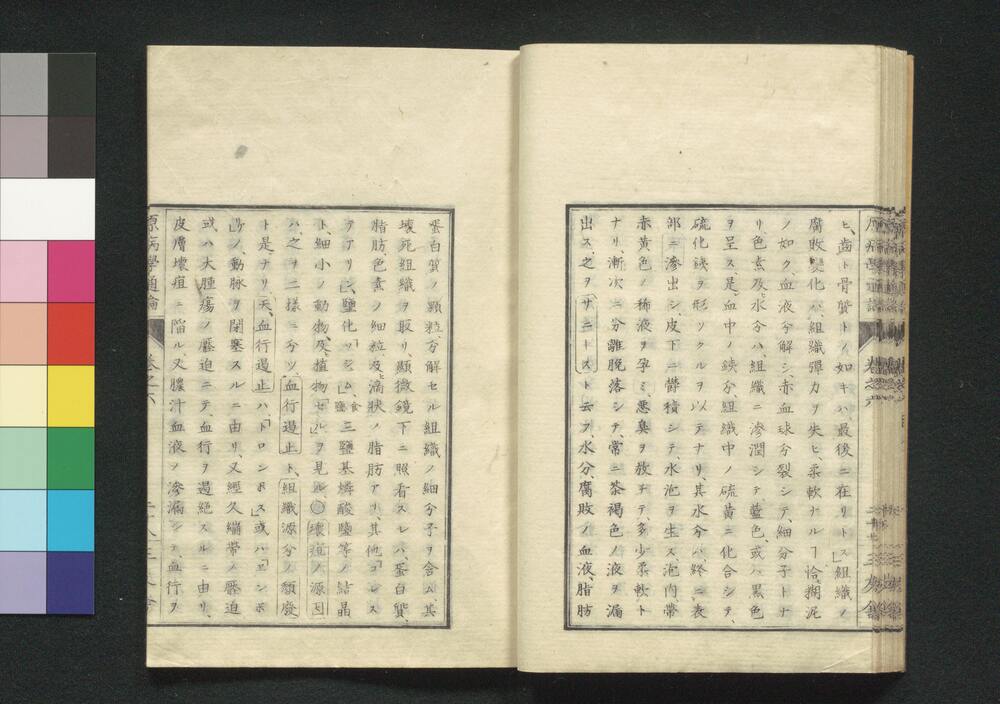 ヒ、齒ト骨質トノ如キハ、最後ニ在リトス」組織ノ
腐敗變化ハ、組織彈力ヲ失ヒ、柔軟ナルヿ恰、糊泥
ノ如ク、血液分解シ、赤血球分裂シテ、細分子トナ
リ色素及ヒ水分ハ、組織ニ滲潤シテ、藍色、或ハ黒色
ヲ呈ス、是血中ノ鐵分、組織中ノ硫黄ニ化合シテ、
硫化鐵ヲ形ツクルヲ以テナリ、其水分ハ終ニ表
部ニ滲出シ、皮下ニ欝積シテ、水泡ヲ生ス、泡内帶
赤黄色ノ稀液ヲ孕ミ、悪臭ヲ放チテ、多少柔軟ト
ナリ、漸次ニ分離脱落シテ、常ニ茶褐色ノ液ヲ漏
出ス、之ヲサニースト云フ、水分、腐敗ノ血液、脂肪
蛋白質ノ顆粒、分解セル組織ノ細分子ヲ含ム、其
壊死組織ヲ取リ、顯微鏡下ニ照看スレハ、蛋白質、
脂肪、色素ノ細粒、及ヒ滴狀ノ脂肪アリ、其他
三鹽基燐酸鹽等ノ結晶
ト、細小ノ動物及植物
ハ、之ヲ二様ニ分ツ、血行遏止ト、組織源分ノ頽廢
ト是ナリ、天、血行遏止ハ、トロンボス或ハエンボ
動脉ヲ閉塞スルニ由リ、又經久繃帶ノ壓迫
或ハ大腫瘍ノ壓迫ニテ、血行ヲ遏絶スルニ由リ、
皮膚壊疽ニ陥ル、又膿汁血液ノ滲漏シテ、血行ヲ
原病學通論
卷之六